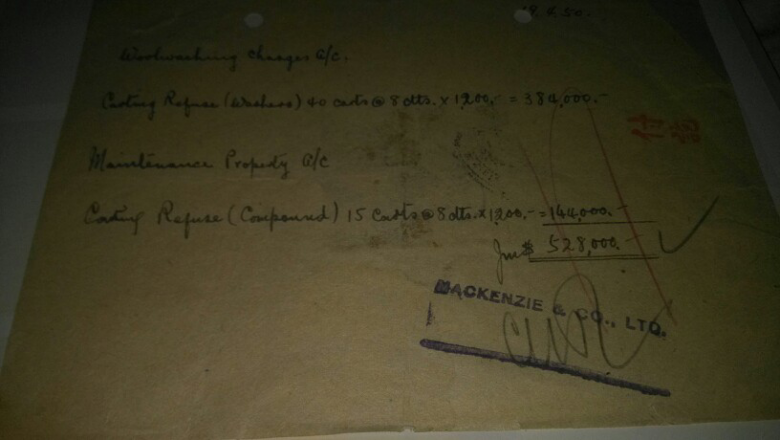 19.4.50.
Woolwashing Charges a/c.
Carting Refuse (Washers) 40 carts @ 8 dts. x 1200.- = 384,000.-
Maintenance Property a/c
Carting Refuse (Compound) 15 carts @ 8 dts. x 1200.- = 144,000.-
Jm$ 528,000.-
MACKENZIE & CO., LTD.